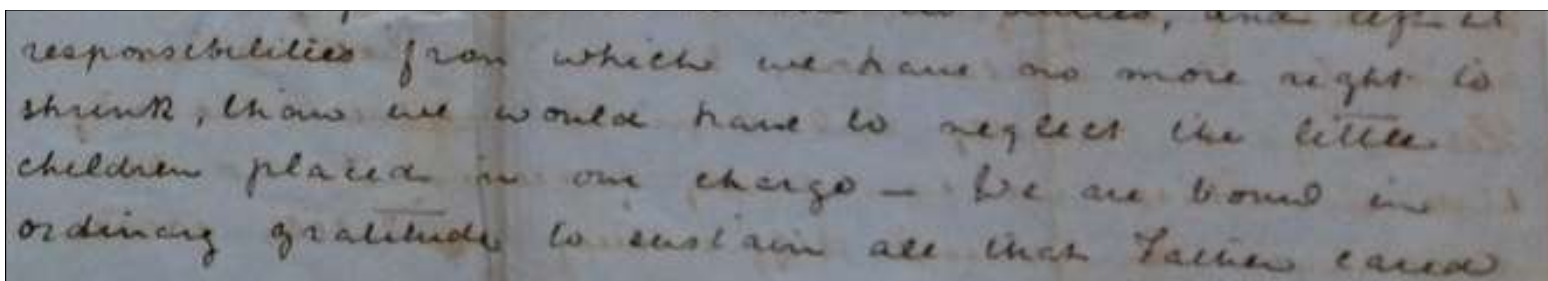 and left us
responsibilities from which we have no more right to
shrink, than we would have to neglect the little
children placed in our charge — We are bound in
ordinary gratitude to sustain all that Father cared